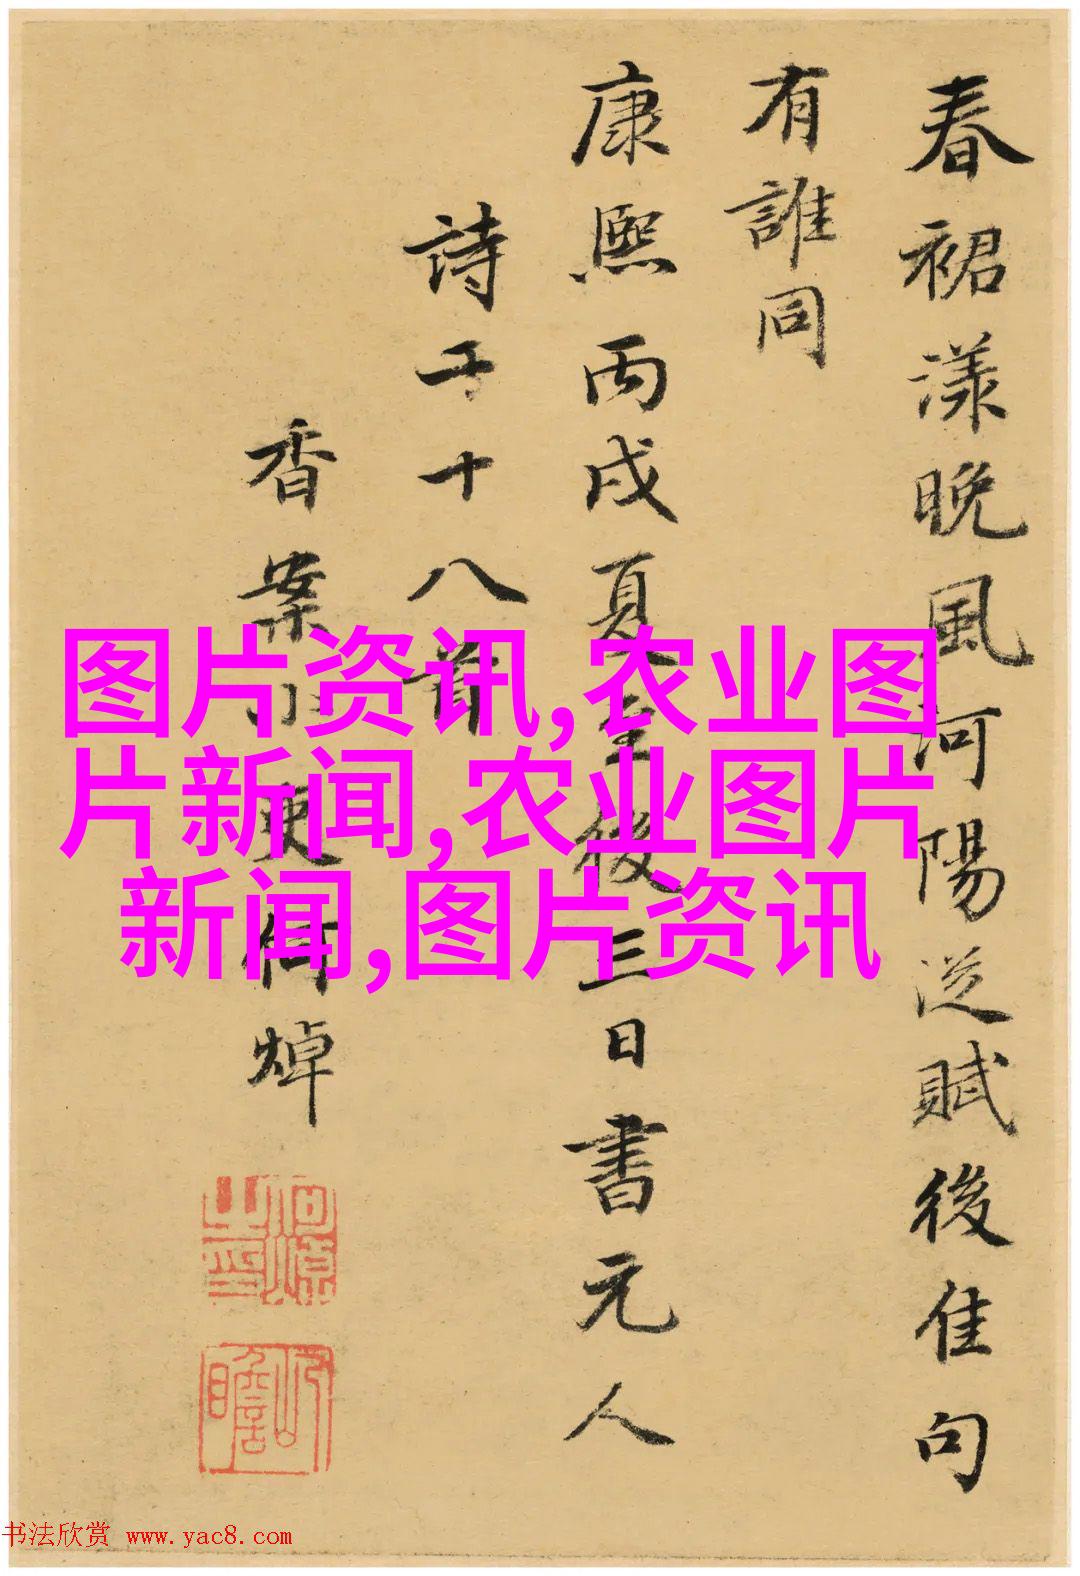 春裙漾晚風河陽從賦後佳句
有誰同
康熙丙戌夏至後三日書元人
詩十八首
香案小吏何焯
何焯之印
屺瞻
图片资讯,农业图
片新闻,农业图片
新闻,图片资讯
书法欣赏 www.yac8.com